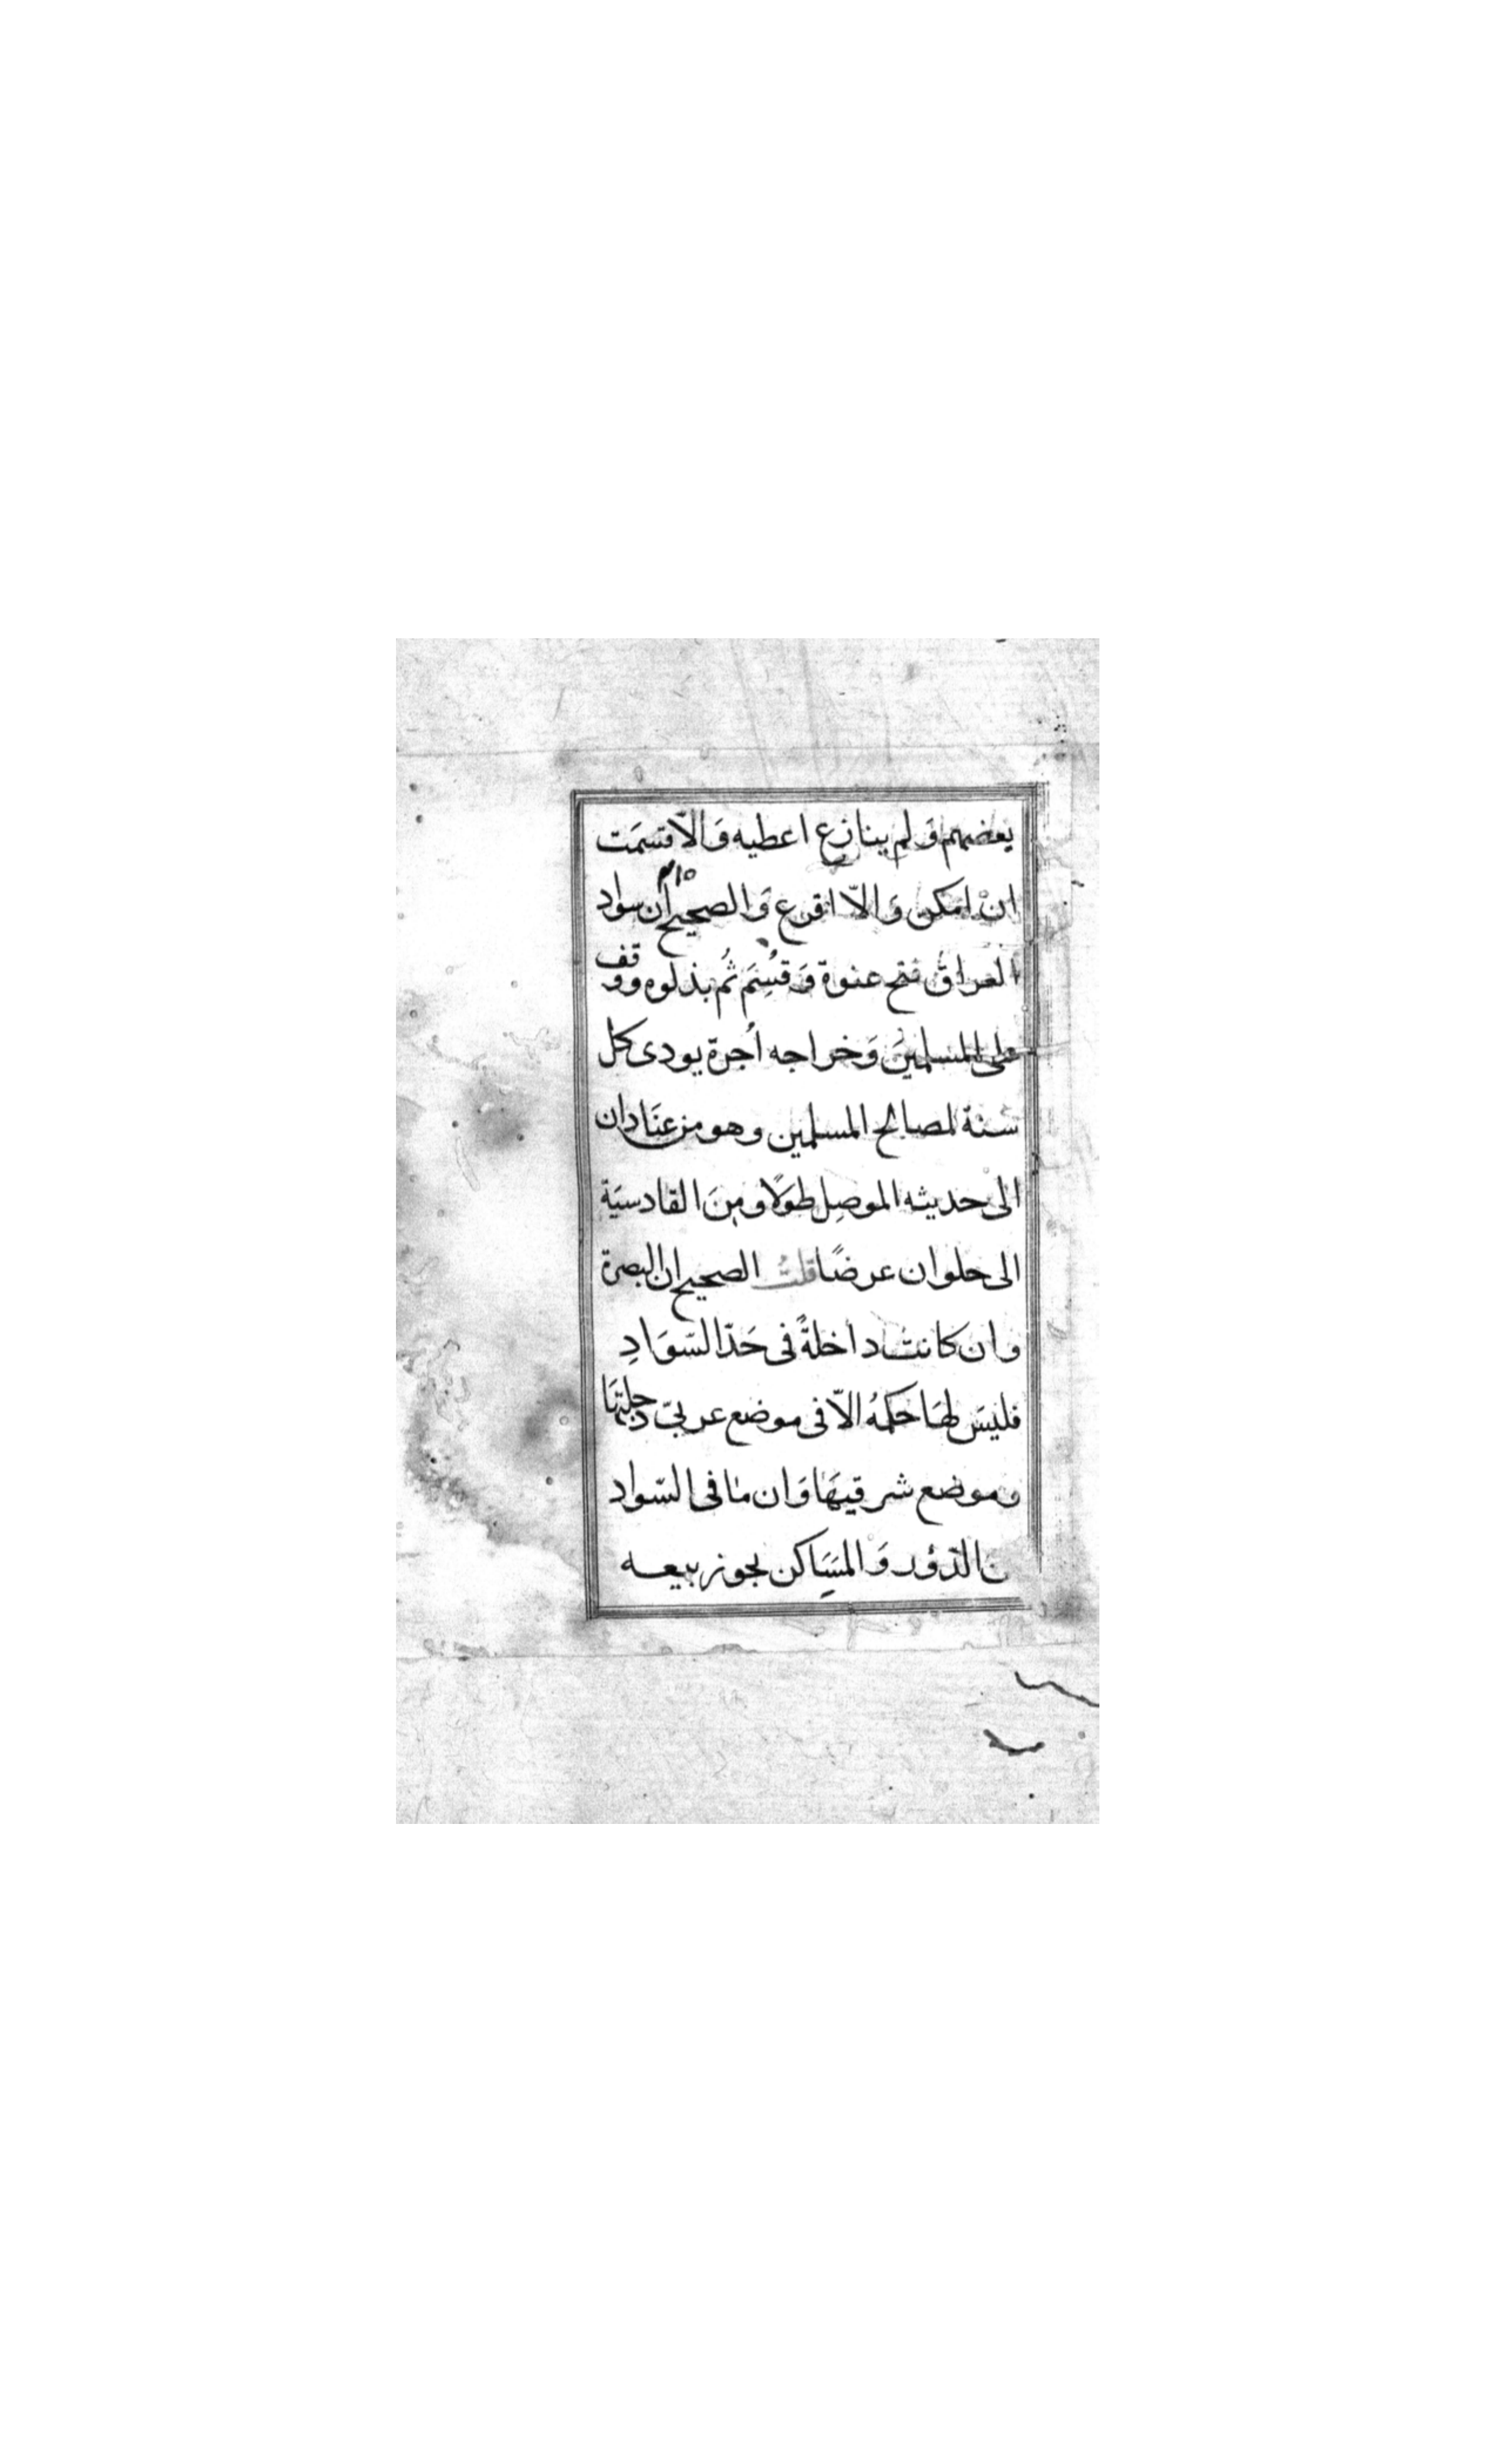 بعضهم وَلم ينازع اعطيه وَالّا قسمَت
ان امكن وَالّا اقرع وَالصحيح ان سواد
العراق فتح عنوة وَقُسِمَ ثُم بذلوه ووقف
على المسلمينَ وَخراجه أُجرة يودى كل
سنة لمصالح المسلمين وهو من عبَادان
الى حديثه الموصِل طوَلًا ومِنَ القادسيَة
الى حلوان عرضًا قلتُ الصحيح ان البصرة
وان كانت داخلةً فى حَدّ السّوَادِ
فليسَ لهَا حكمهُ الّا فى موضع عربىّ دجلتهَا
وموضع شرقيهَا وَان ما فى السّواد
من الدّور وَالمسَاكن يجوز بيعه